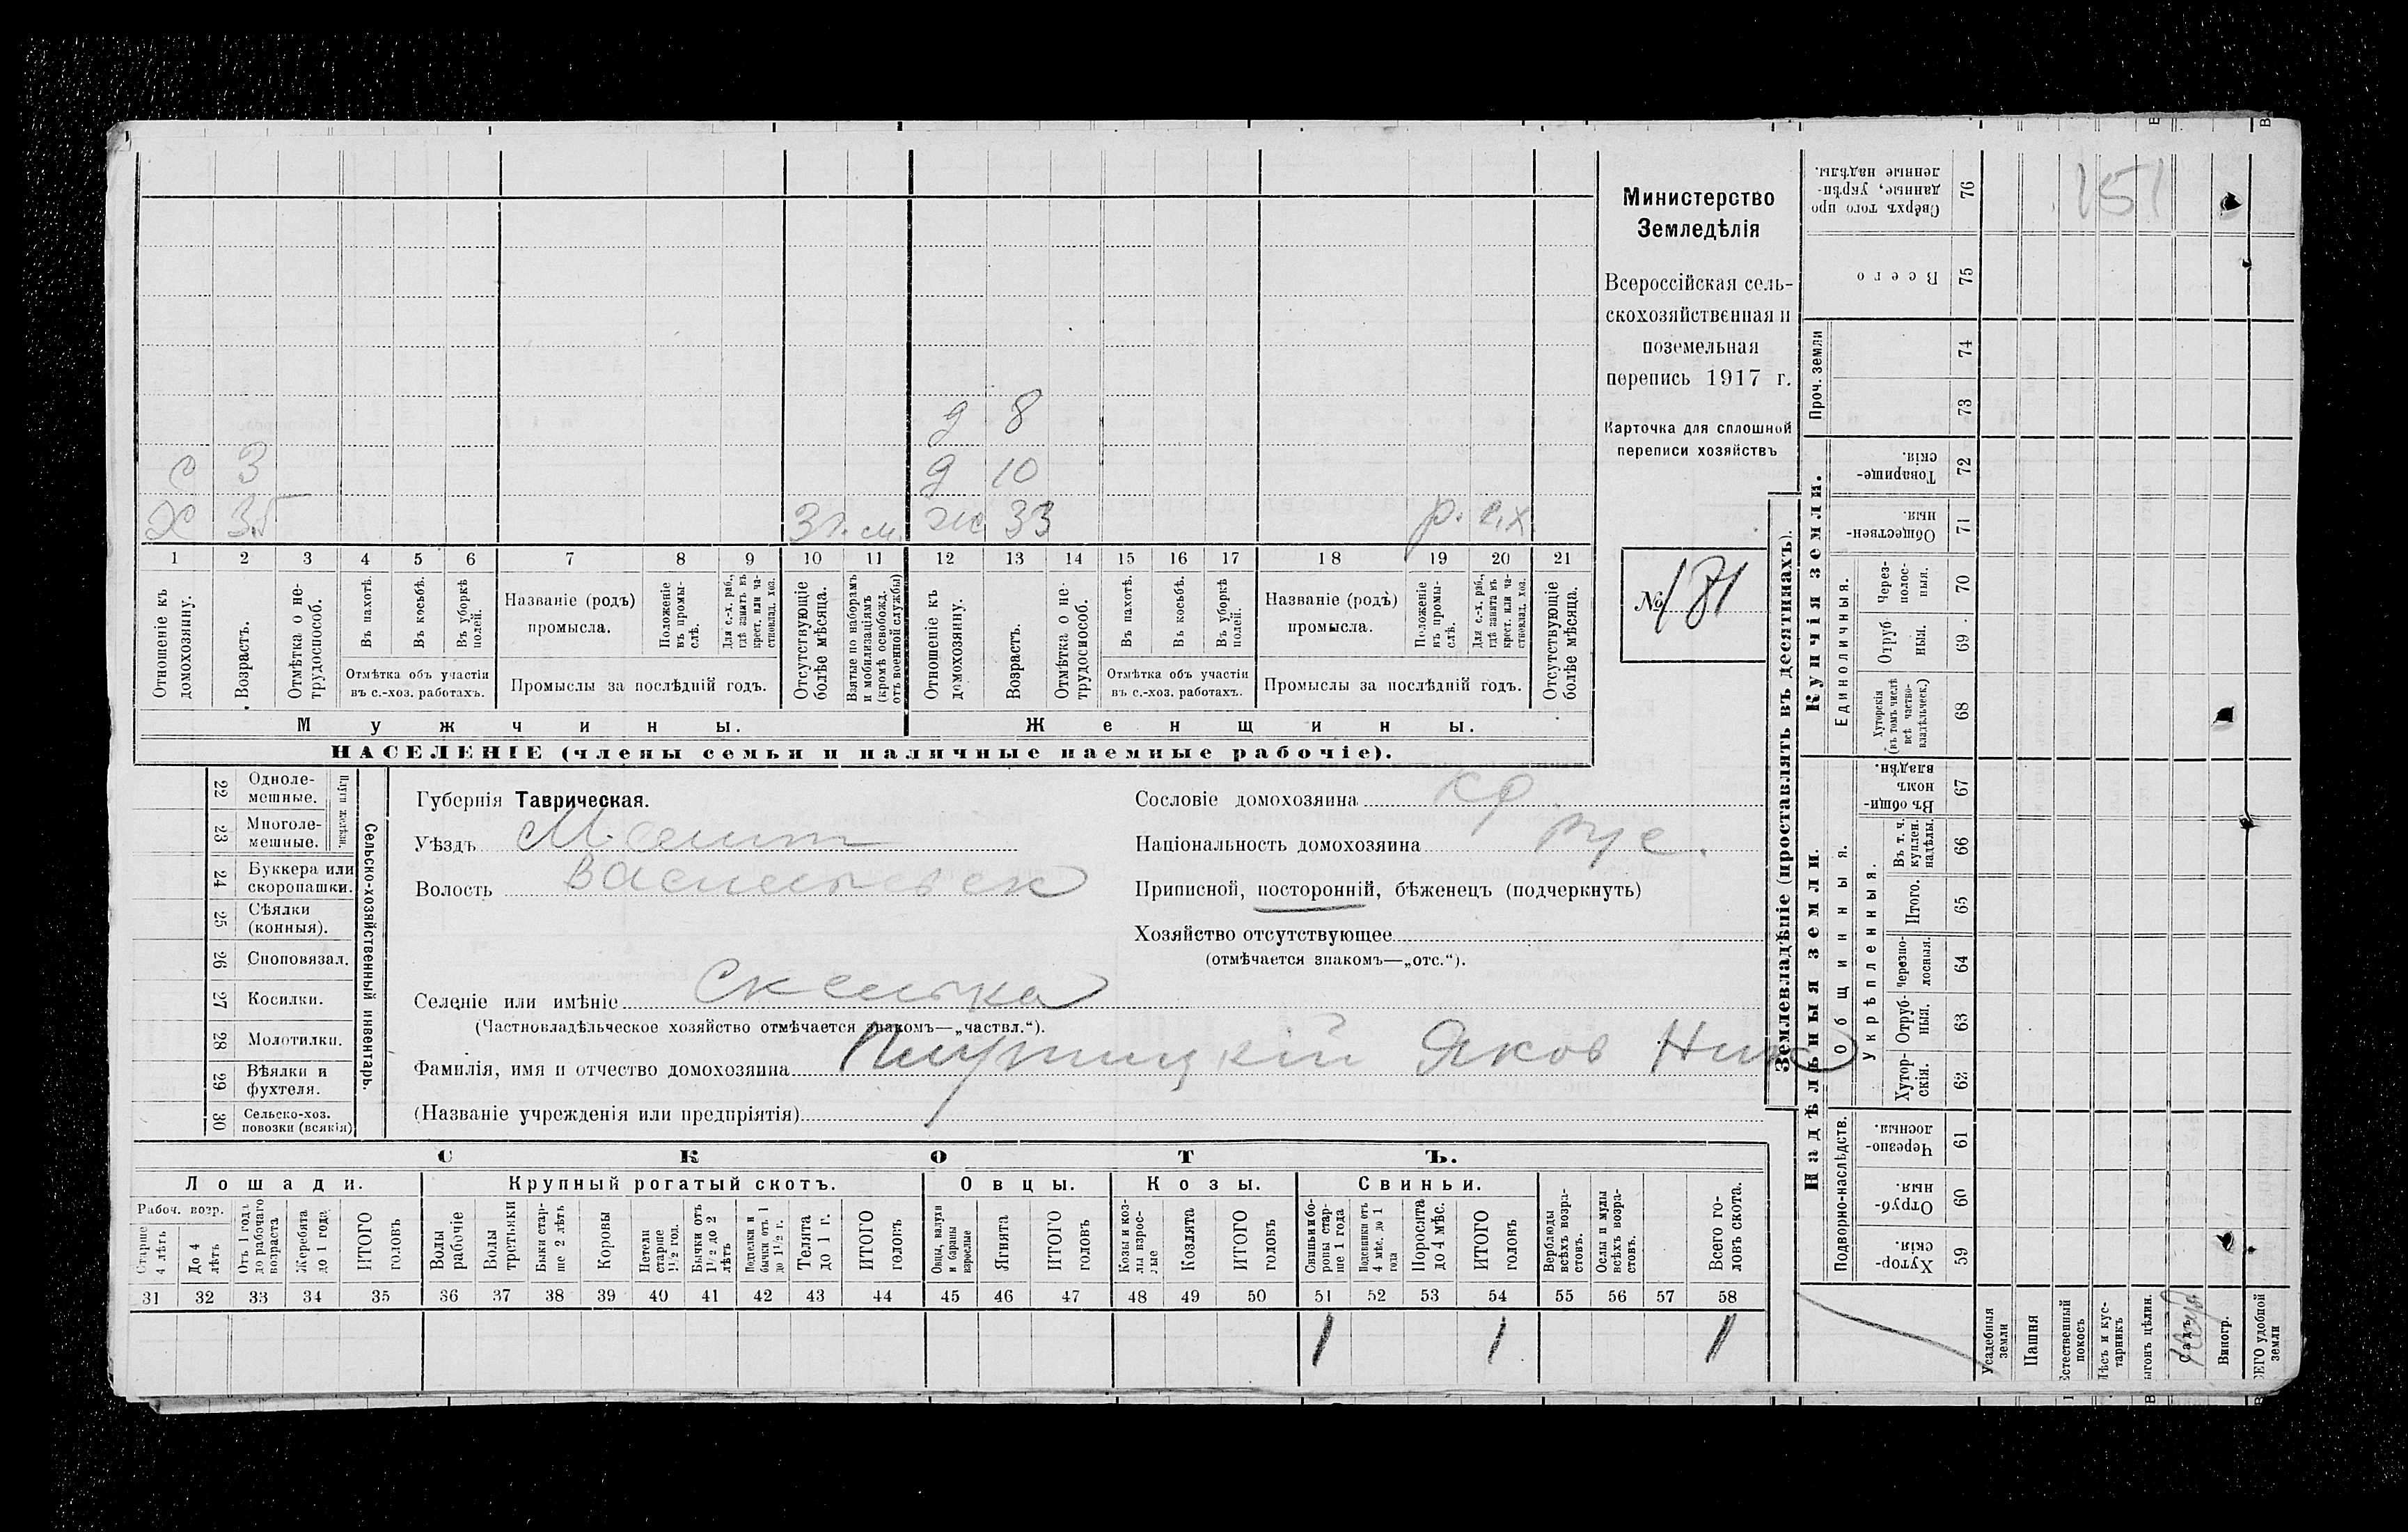 с 3
Х 35 3 г. м.
д 8
д 10
ж 33 р. с.х.
1 2 3 4 5 6 7 8 9 10 11 12 13 14 15 16 17 18 19 20 21
Отношеніе къ домохозяину.
Возрастъ.
Отмѣтка о не-трудоспособ.
Въ пахотѣ.
Въ косьбѣ.
Въ уборкѣ полей.
Отмѣтка объ участіи
въ с.-хоз. работахъ.
Названіе (родъ)
промысла.
Положеніе въ промы-слѣ.
Для с.-х. раб., гдѣ занятъ въ крест. или ча-стновлад. хоз.
Промыслы за послѣдній годъ.
Отсутствующіе болѣе мѣсяца.
Взятые по наборамъ и мобилизаціямъ (кромѣ освобожд. отъ военной службы)
Отношеніе къ домохозяину.
Возрастъ.
Отмѣтка о не-трудоспособ.
Въ пахотѣ.
Въ косьбѣ.
Въ уборкѣ полей.
Отмѣтка объ участіи
въ с.-хоз. работахъ.
Названіе (родъ)
промысла.
Положеніе въ промы-слѣ.
Для с.-х. раб., гдѣ занята въ крест. или ча-стновлад. хоз.
Промыслы за послѣдній годъ.
Отсутствующіе болѣе мѣсяца.
Мужчины. Женщины.
НАСЕЛЕНІЕ (члены семьи и наличные наемные рабочіе).
Министерство
Земледѣлія
Всероссійская сель-
скохозяйственная и
поземельная
перепись 1917 г.
Карточка для сплошной
переписи хозяйствъ
№ 181
22 Однолемешные.
23 Многолемешные.
Плуги желѣзн.
24 Буккера или скоропашки.
25 Сѣялки (конныя).
26 Сноповязал.
27 Косилки.
28 Молотилки.
29 Вѣялки и фухтеля.
30 Сельско-хоз. повозки (всякія)
Сельско-хозяйственный инвентарь.
Губернія Таврическая.
Уѣздъ Мелит
Волость Васильевск
Селеніе или имѣніе Скелька
(Частновладѣльческое хозяйство отмѣчается знакомъ—„частвл.“).
Фамилія, имя и отчество домохозяина Яков Ник
(Названіе учрежденія или предпріятія)
Сословіе домохозяина кр
Національность домохозяина рус.
Приписной, посторонній, бѣженецъ (подчеркнуть)
Хозяйство отсутствующее
(отмѣчается знакомъ—„отс.“).
СКОТЪ.
Лошади. Крупный рогатый скотъ. Овцы. Козы. Свиньи.
Рабоч. возр.
Старше 4 лѣтъ
До 4 лѣтъ
Отъ 1 года до рабочаго возраста
Жеребята до 1 года
ИТОГО головъ
Волы рабочіе
Волы третьяки
Быки стар-ше 2 лѣтъ
Коровы
Нетели старше 1½ год.
Бычки отъ 1½ до 2 лѣтъ
Подтелки и бычки отъ 1 до 1½ г.
Телята до 1 г.
ИТОГО головъ
Овцы, валухи и бараны взрослые
Ягнята
ИТОГО головъ
Козы и коз-лы взрос-лые
Козлята
ИТОГО головъ
Свиньи и бо-ровы стар-ше 1 года
Подсвинки отъ 4 мѣс. до 1 года
Поросята до 4 мѣс.
ИТОГО головъ
Верблюды всѣхъ возра-стовъ.
Ослы и мулы всѣхъ возра-стовъ.
Всего го-ловъ скота.
31 32 33 34 35 36 37 38 39 40 41 42 43 44 45 46 47 48 49 50 51 52 53 54 55 56 57 58
1 1 1
Землевладѣніе (проставлять въ десятинахъ).
Надѣльныя земли. Купчія земли.
Подворно-наслѣдств.
Общинныя.
Укрѣпленныя.
Единоличныя.
Проч. земли
Хутор-скія. 59
Отруб-ныя. 60
Черезпо-лосныя. 61
Хутор-скія. 62
Отруб-ныя. 63
Черезпо-лосныя. 64
Итого. 65
Въ т. ч. куплен. надѣлы. 66
Въ общи-номъ владѣн. 67
Хуторскія (въ томъ числѣ всѣ частно-владѣльческ.) 68
Отруб-ныя. 69
Через-полос-ныя. 70
Обществен-ныя. 71
Товарище-скія. 72
73
74
Всего 75
Сверхъ того про данные, укрѣп-ленные надѣлы. 76
151
Усадебныя земли
Пашня
Естественный покосъ
Лѣсъ и кус-тарникъ
Выгонъ цѣлин.
Садъ
Виногр.
ВСЕГО удобной земли